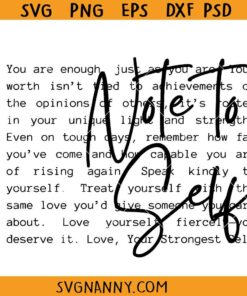 SVG PNG EPS DXF PSD
You are enough, just as you are. You
worth isn't tied to achievements o
the opinions of others, it's roote
in your unique light and strength
Even on tough days, remember how fa
you've come and how capable you are
of rising again. Speak kindly t
yourself. Treat yourself with the
same love you'd give someone you car
about. Love yourself fiercely yo
deserve it. Love, Your Strongest Sel
Note to
Self
SVGNANNY.COM